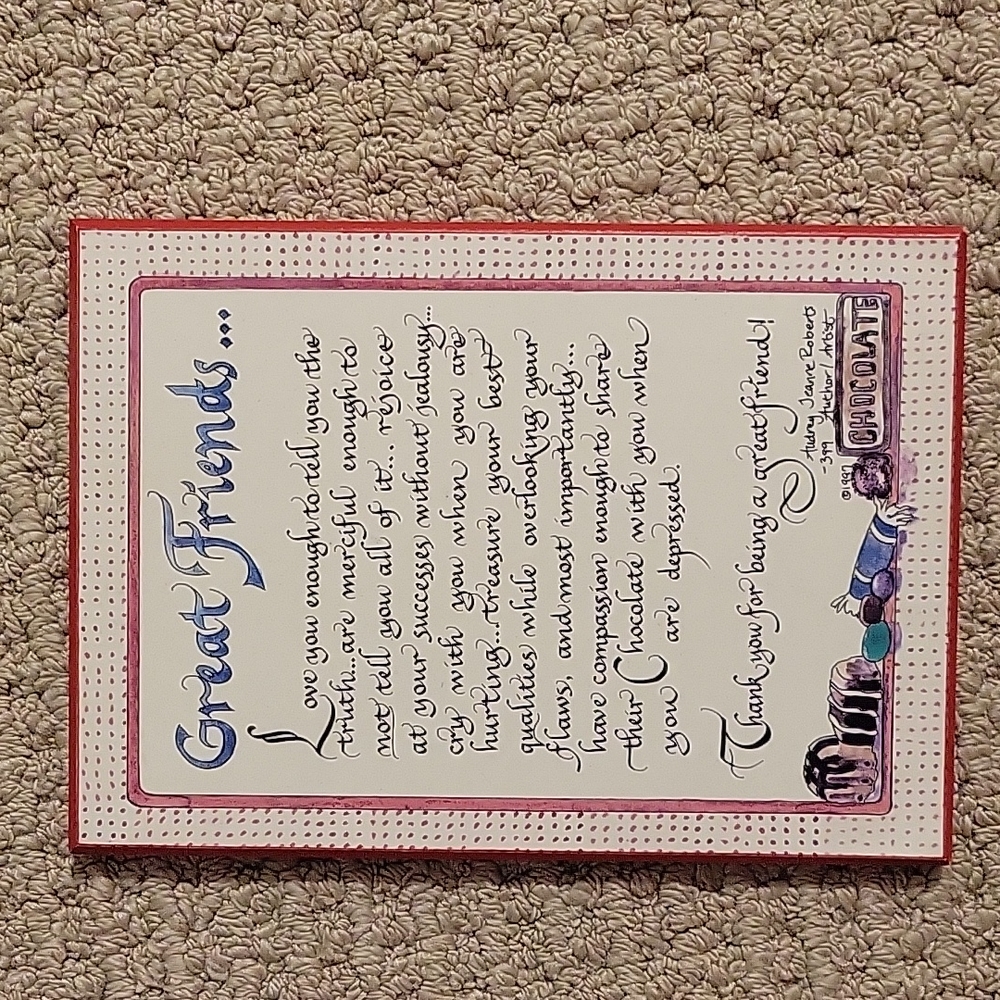 Great Friends...
Love you enough to tell you the
truth...are merciful enough to
not tell you all of it... rejoice
at your successes without jealousy...
cry with you when you are
hurting...treasure your best
qualities while overlooking your
flaws, and most importantly...
have compassion enough to share
their Chocolate with you when
you are depressed.
Thank you for being a great friend!
Audrey Jeanne Roberts
399 Author/Artist
©1997
CHOCOLATE